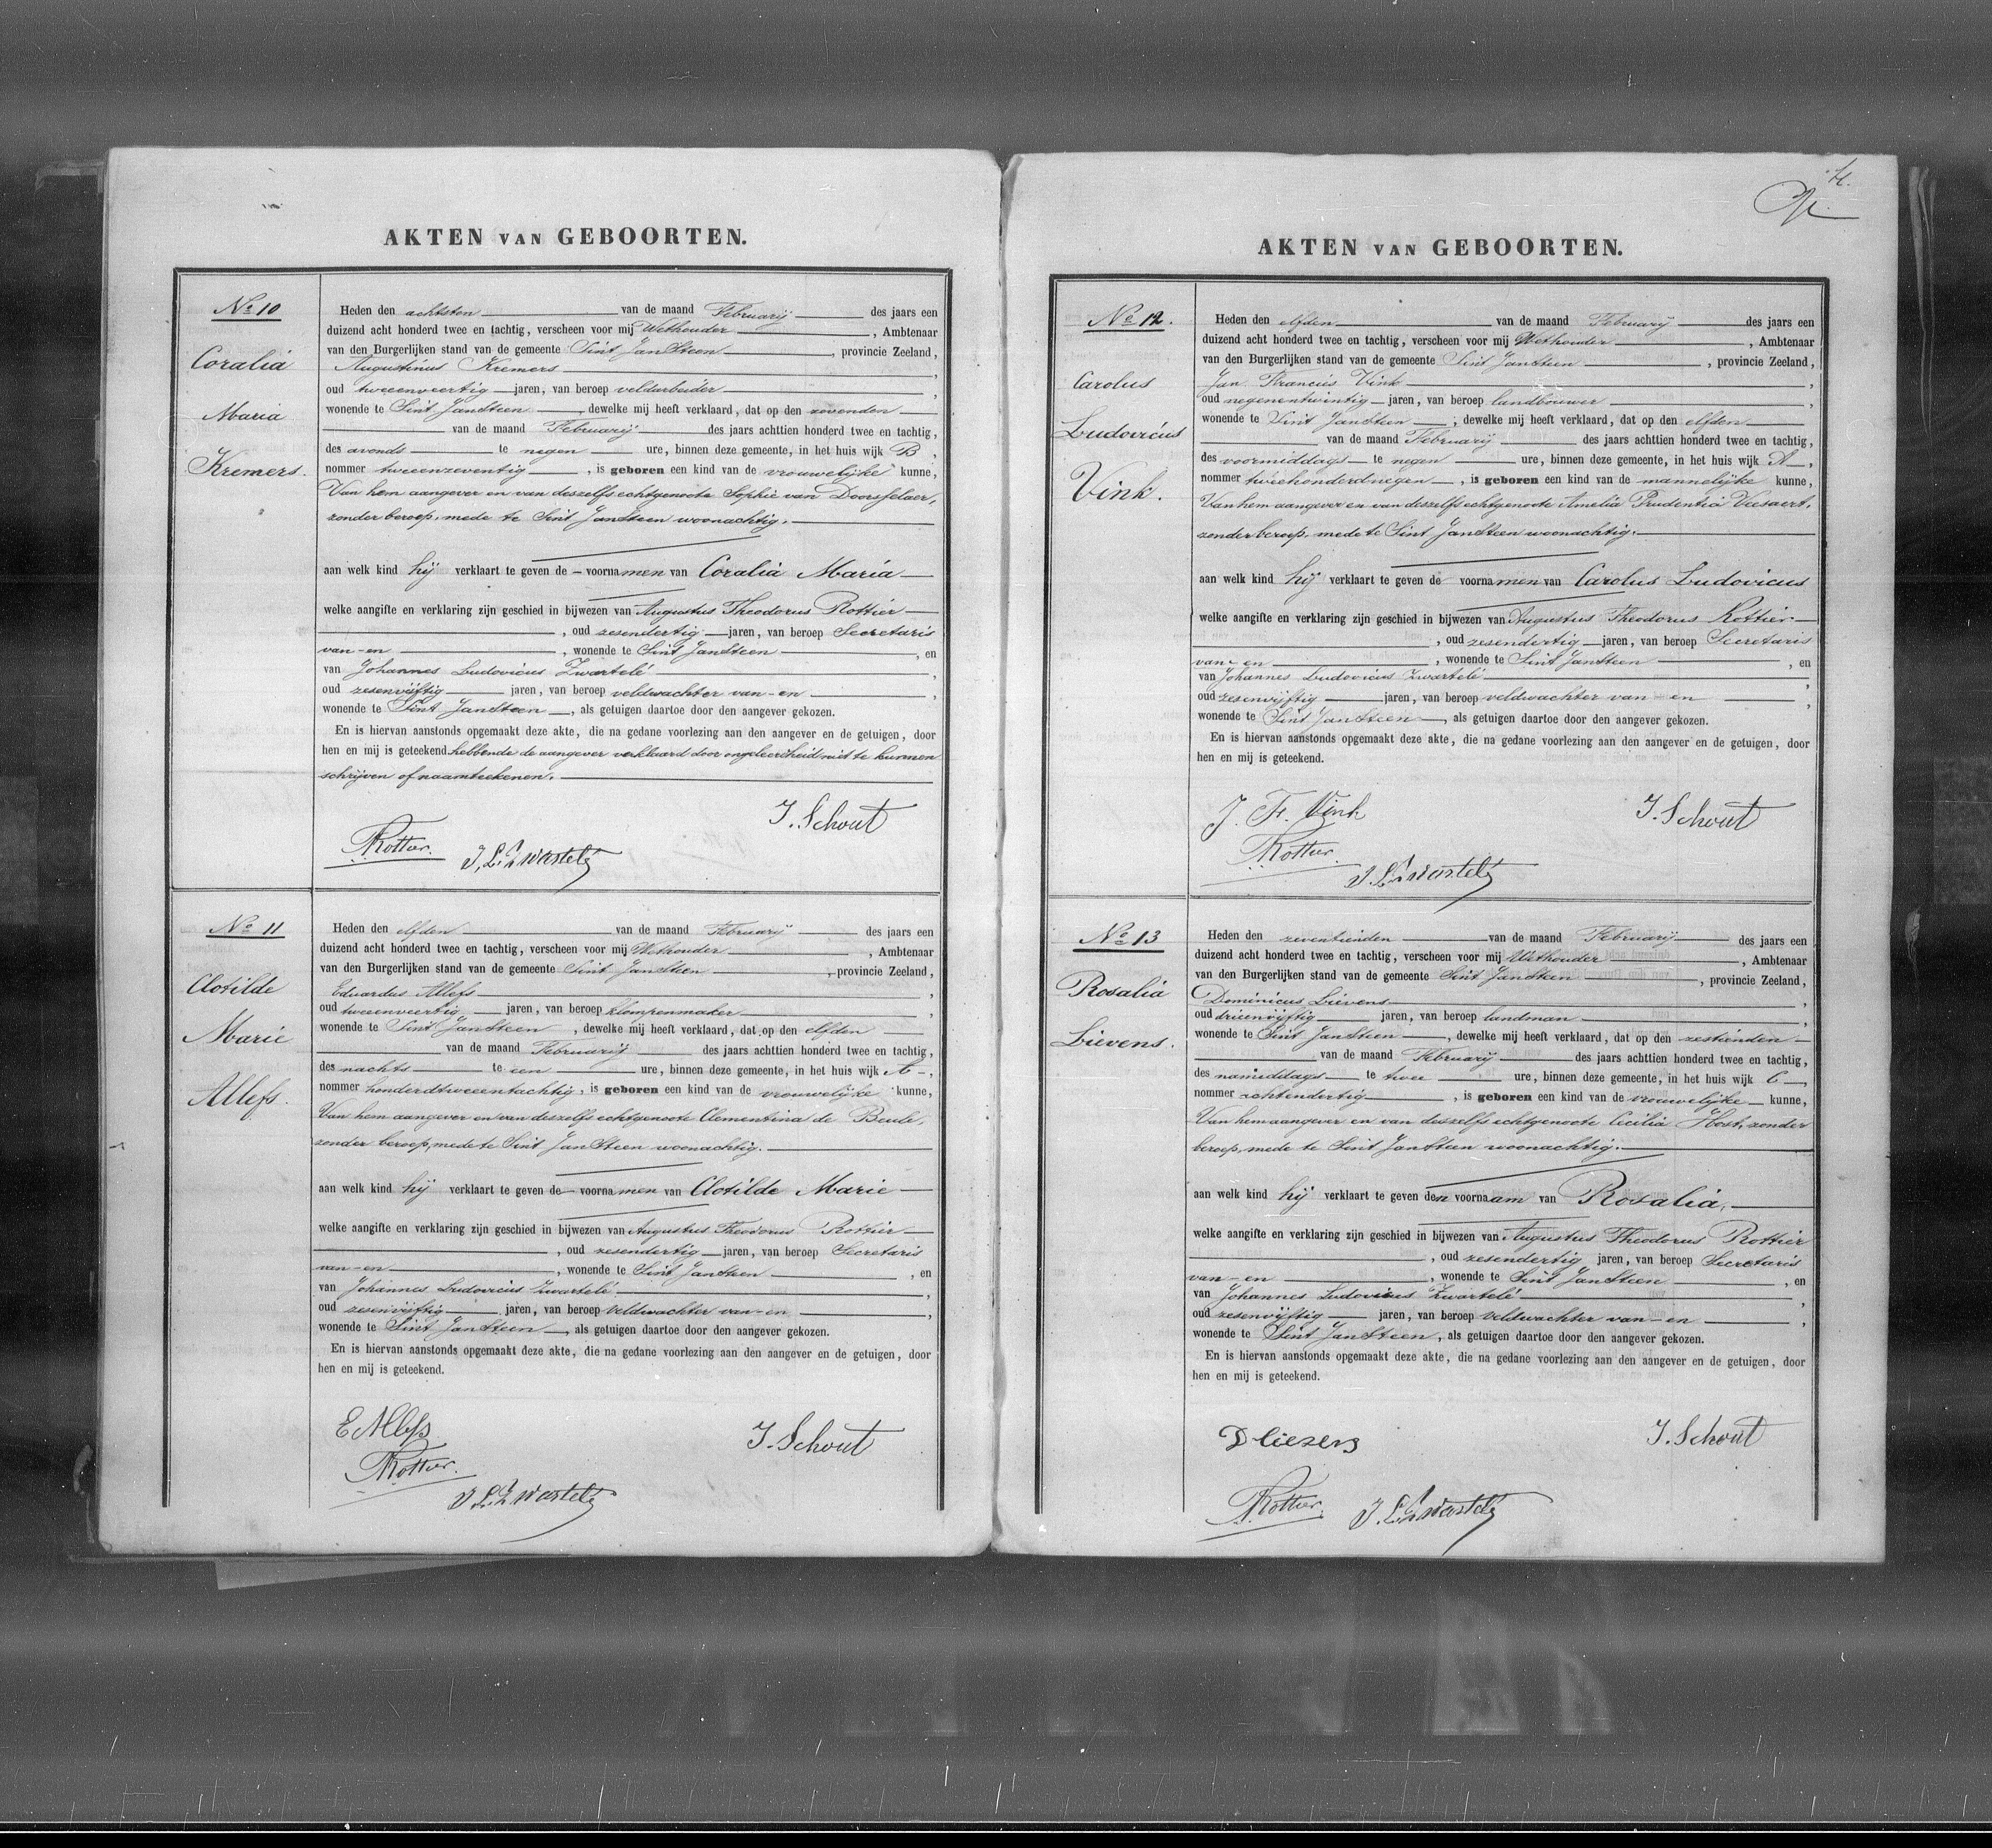 AKTEN VAN GEBOORTEN.
No 10
Coralia
Maria
Kremers.
Heden den achtsten van de maand Februarij des jaars een
duizend acht honderd twee en tachtig, verscheen voor mij Wethouder, Ambtenaar
van den Burgerlijken stand van de gemeente Sint JanSteen, provincie Zeeland,
Augustinus Kremers,
oud tweeenveertig jaren, van beroep veldarbeider,
wonende te Sint JanSteen, dewelke mij heeft verklaard, dat op den zevenden
van de maand Februarij des jaars achttien honderd twee en tachtig,
des avonds te negen ure, binnen deze gemeente, in het huis wijk B,
nommer tweeenzeventig, is geboren een kind van de vrouwelijke kunne,
Van hem aangever en van deszelfs echtgenoote Sophie van Doorsselaer,
zonder beroep, mede te Sint JanSteen woonachtig.
aan welk kind hij verklaart te geven de voornamen van Coralia Maria
welke aangifte en verklaring zijn geschied in bijwezen van Augustus Theodorus Rottier
, oud zesendertig jaren, van beroep Secretaris
van-en, wonende te Sint JanSteen, en
van Johannes Ludovicus Zwartelé,
oud zesenvijftig jaren, van beroep veldwachter van-en,
wonende te Sint JanSteen, als getuigen daartoe door den aangever gekozen.
En is hiervan aanstonds opgemaakt deze akte, die na gedane voorlezing aan den aangever en de getuigen, door
hen en mij is geteekend. hebbende de aangever verklaard door ongeleerdheid niet te kunnen
schrijven of naamteekenen.
J. Schout
Rottier.
J. L. Zwartelé
No 11
Clotilde
Marie
Allefs.
Heden den elfden van de maand Februarij des jaars een
duizend acht honderd twee en tachtig, verscheen voor mij Wethouder, Ambtenaar
van den Burgerlijken stand van de gemeente Sint JanSteen, provincie Zeeland,
Eduardus Allefs,
oud tweeenveertig jaren, van beroep klompenmaker,
wonende te Sint JanSteen, dewelke mij heeft verklaard, dat op den elfden
van de maand Februarij des jaars achttien honderd twee en tachtig,
des nachts te een ure, binnen deze gemeente, in het huis wijk A,
nommer honderdtweeentachtig, is geboren een kind van de vrouwelijke kunne,
Van hem aangever en van deszelfs echtgenoote Clementina de Beule,
zonder beroep, mede te Sint JanSteen woonachtig.
aan welk kind hij verklaart te geven de voornamen van Clotilde Marie
welke aangifte en verklaring zijn geschied in bijwezen van Augustus Theodorus Rottier
, oud zesendertig jaren, van beroep Secretaris
van-en, wonende te Sint JanSteen, en
van Johannes Ludovicus Zwartelé,
oud zesenvijftig jaren, van beroep veldwachter van-en,
wonende te Sint JanSteen, als getuigen daartoe door den aangever gekozen.
En is hiervan aanstonds opgemaakt deze akte, die na gedane voorlezing aan den aangever en de getuigen, door
hen en mij is geteekend.
E Allefs
J. Schout
Rottier.
J. L. Zwartelé
4.
AKTEN VAN GEBOORTEN.
No 12.
Carolus
Ludovicus
Vink.
Heden den elfden van de maand Februarij des jaars een
duizend acht honderd twee en tachtig, verscheen voor mij Wethouder, Ambtenaar
van den Burgerlijken stand van de gemeente Sint JanSteen, provincie Zeeland,
Jan Francies Vink,
oud negenentwintig jaren, van beroep landbouwer,
wonende te Sint JanSteen, dewelke mij heeft verklaard, dat op den elfden
van de maand Februarij des jaars achttien honderd twee en tachtig,
des voormiddags te negen ure, binnen deze gemeente, in het huis wijk A,
nommer tweehonderdnegen, is geboren een kind van de mannelijke kunne,
Van hem aangever en van deszelfs echtgenoote Amelia Prudentia Viesaert,
zonder beroep, mede te Sint JanSteen woonachtig.
aan welk kind hij verklaart te geven de voornamen van Carolus Ludovicus
welke aangifte en verklaring zijn geschied in bijwezen van Augustus Theodorus Rottier
, oud zesendertig jaren, van beroep Secretaris
van-en, wonende te Sint JanSteen, en
van Johannes Ludovicus Zwartelé,
oud zesenvijftig jaren, van beroep veldwachter van-en,
wonende te Sint JanSteen, als getuigen daartoe door den aangever gekozen.
En is hiervan aanstonds opgemaakt deze akte, die na gedane voorlezing aan den aangever en de getuigen, door
hen en mij is geteekend.
J. F. Vink
J. Schout
Rottier.
J. L. Zwartelé
No 13
Rosalia
Lievens.
Heden den zeventienden van de maand Februarij des jaars een
duizend acht honderd twee en tachtig, verscheen voor mij Wethouder, Ambtenaar
van den Burgerlijken stand van de gemeente Sint JanSteen, provincie Zeeland,
Dominicus Lievens,
oud drieenvijftig jaren, van beroep landman,
wonende te Sint JanSteen, dewelke mij heeft verklaard, dat op den zestienden
van de maand Februarij des jaars achttien honderd twee en tachtig,
des namiddags te twee ure, binnen deze gemeente, in het huis wijk C,
nommer achtendertig, is geboren een kind van de vrouwelijke kunne,
Van hem aangever en van deszelfs echtgenoote Cecilia Host, zonder
beroep, mede te Sint JanSteen woonachtig.
aan welk kind hij verklaart te geven den voornaam van Rosalia,
welke aangifte en verklaring zijn geschied in bijwezen van Augustus Theodorus Rottier
, oud zesendertig jaren, van beroep Secretaris
van-en, wonende te Sint JanSteen, en
van Johannes Ludovicus Zwartelé,
oud zesenvijftig jaren, van beroep veldwachter van-en,
wonende te Sint JanSteen, als getuigen daartoe door den aangever gekozen.
En is hiervan aanstonds opgemaakt deze akte, die na gedane voorlezing aan den aangever en de getuigen, door
hen en mij is geteekend.
D liezens
J. Schout
Rottier.
J. L. Zwartelé